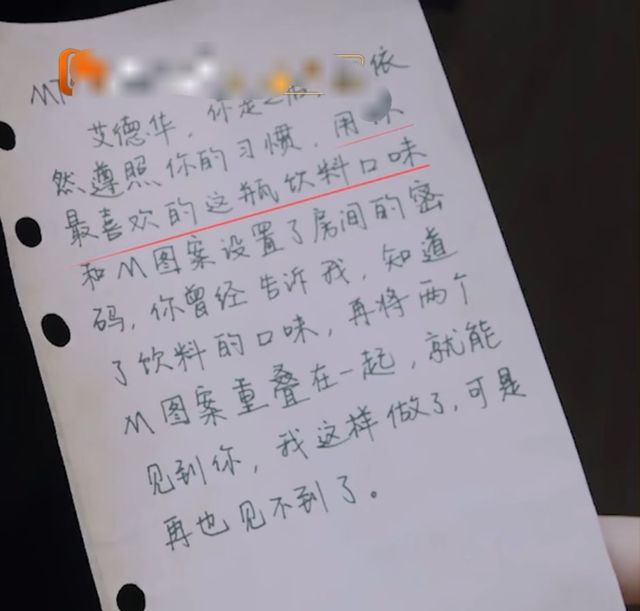 M
艾德华，你走之后，依
然遵照你的习惯，用你
最喜欢的这瓶饮料口味
和M图案设置了房间的密
码，你曾经告诉我，知道
了饮料的口味，再将两个
M图案重叠在一起，就能
见到你，我这样做了，可是
再也见不到了。